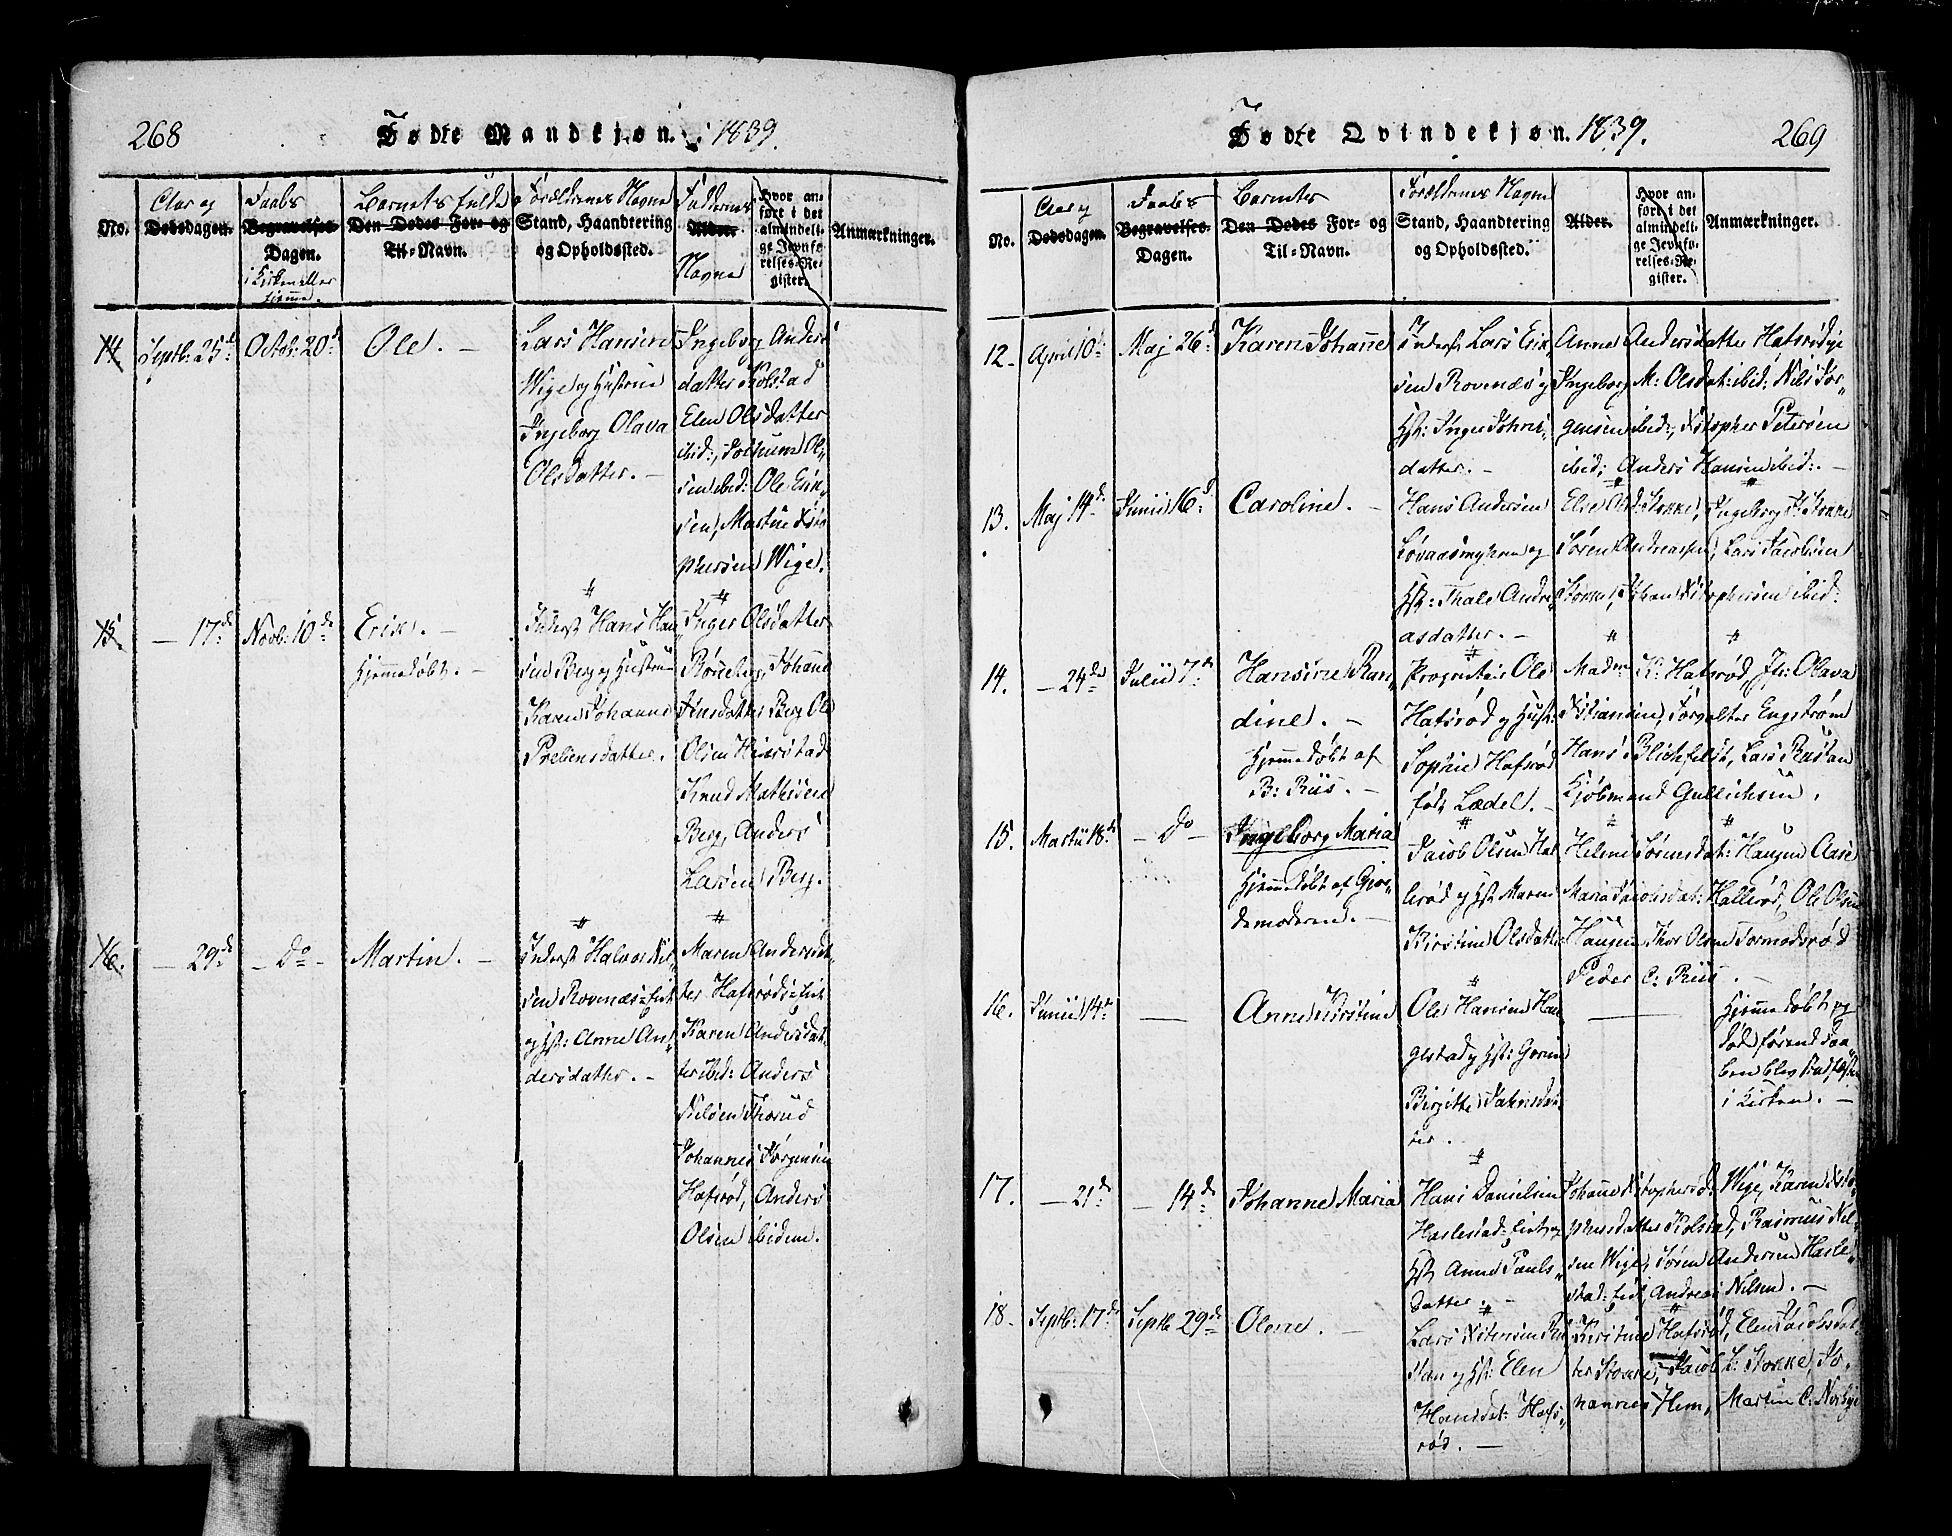 268
Fødte Mandkjøn. 1839.
No.
Aar og
Dødsdagen.
Daabs
Begravelses-
Dagen.
i Kirken eller
hjemme.
Barnets fulde
Den Dødes For- og
Til-Navn.
Forældrenes Navne
Stand, Haandtering
og Opholdssted.
Faddernes
Alder.
Navne
Hvor an-
ført i det
almindeli-
ge Jevnfø-
relses-Re-
gister.
Anmærkninger.
14
Septb: 25d
Octob: 20d
Ole. -
Lars Hansen
Wige og Hustrue
Ingeborg Olava
Olsdatter. -
Ingeborg Anders
datter Kolstad
Elen Olsdatter
ibid:, Jochum Ol-
sen ibid: Ole Erik-
sen, Martin Xsto
phersen Wige.
15.
- 17de
Novb: 10de
Erik. -
Hjemmedøbt. -
Inderst Hans Han
sen Berg og Hustrue
Karen Johanne
Prebensdatter.
Inger Olsdatter
Rønneberg, Johanne
Jensdatter Berg Ole
Olsen
Knud Mathisen
Berg, Anders
Larsen Berg.
16.
- 29de
- Do -
Martin. -
Inderst Halvor
sen Rovenæs-Eie
og Hst: Anne An-
dersdatter. -
Maren Andersdat-
ter Hafsrøds-Eie
Karen Andersdat-
ter ibid: Anders
Nilsen Thorud
Johannes Jørgensen
Hafsrød, Anders
Olsen ibidem.
Fødte Qvindekjøn. 1839.
269
No.
Aar og
Dødsdagen.
Daabs
Begravelses-
Dagen.
Barnets
Den Dødes For- og
Til-Navn.
Forældrenes Navne
Stand, Haandtering
og Opholdssted.
Alder.
Hvor an-
ført i det
almindeli-
ge Jevnfø-
relses-Re-
gister.
Anmærkninger.
12.
April 10d
Maj 26d
Karen Johanne
Inderst Lars Erik-
sen Rovenæs og
Hst: Inger Johns-
datter. -
Anne Andersdatter Hafsrødeje
Ingeborg M: Olsdat: ibid: Nils Jør-
gensen ibid:, Xstopher Petersen
ibid; Anders Hansen ibid:. -
13.
Maj 14d
Junii 16d
Caroline. -
Hans Andersen
Løvaasmyhren og
Hst: Thale Andre
asdatter. -
Else Olsd: Stokke, Ingeborg Stokke
Søren Andreassen, Lars Jacobsen
Stokke, Johan Xstophersen ibid:
14.
- 24de
Julii 7de
Hansine Ran-
dine. -
Hjemmedøbt af
B: Riis. -
Proprietair Ole
Hafsrød og Hust:
Sophie Hafsrød
født Lædel. -
Madm K: Hafsrød, Jfr: Olava
Xstiansen, Forvalter Engstrøm
Hans Blichfeldt, Lars Rustan
Kjøbmand Gullichsen.
15.
Martii 18de
- Do -
Ingeborg Maria
Hjemmedøbt af Gjor-
demoderen. -
Jacob Olsen Hal
lerød og Hst Maren
Kirstine Olsdatter
Helene Sørensdat: Haugen Aase
Maria Jacobsdat: Hallerød, Ole Olsen
Haugen Thor Olsen Tormodsrød
Peder C: Riis. -
16.
Junii 14de
-
Anne Kirstine
Ole Hansen Hau
gestad og Hst: Gorine
Birgitte Jahnsdat-
ter.
-
Hjemmedøbt og
død førend Daa
ben blev stadfæstet
i Kirken. -
17.
- 21de
- 14de
Johanne Maria
Hans Danielsen
Haslestad-Eie og
Hst Anne Pauls-
datter. -
Johanne Xstophersd: Wige, Karen Xsto-
phersdatter Kolstad, Rasmus Nil-
sen Wige, Søren Andersen Hasle-
stad-Eie, Andreas Nilsen. -
18.
Septb: 17de
Septb 29de
Olene. -
Lars Xstensen
og Hst: Elen
Hansdat: Hafs-
rød. -
Kirstine Hafsrød, Elen Jacobsdat
ter Stokke, Jacob L: Stokke, Jo-
hannes Hem, Martin C: Norbye